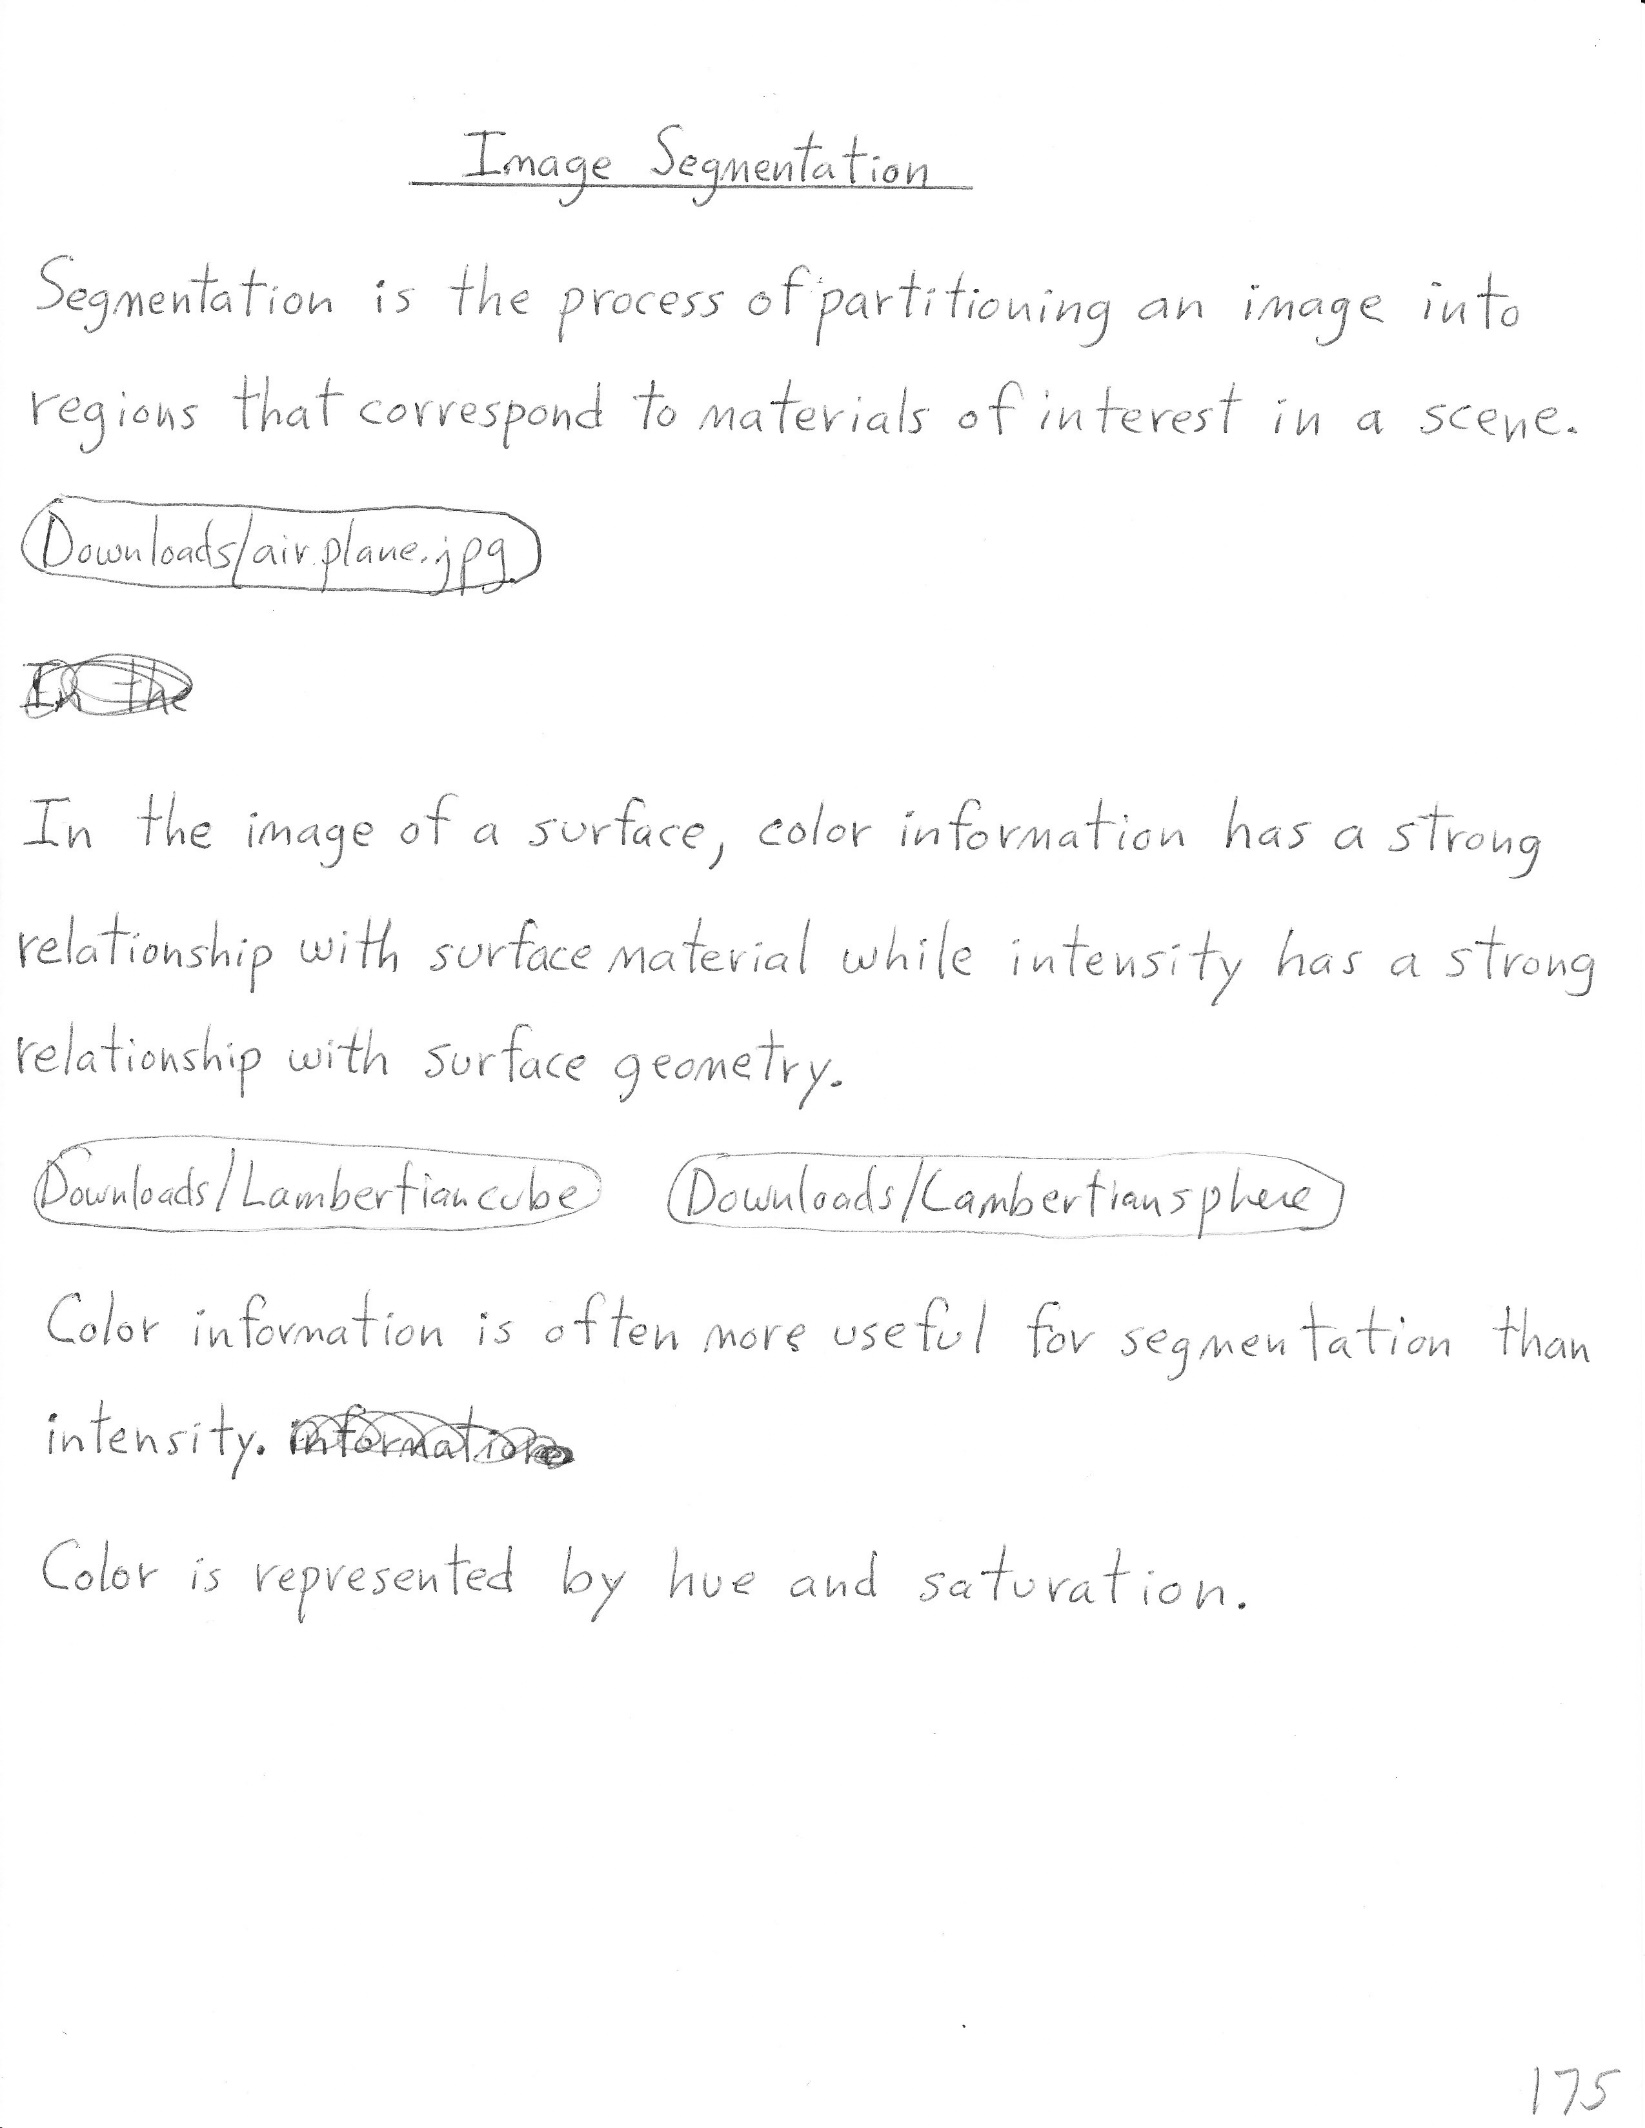 Image Segmentation
Segmentation is the process of partitioning an image into
regions that correspond to materials of interest in a scene.
Downloads/airplane.jpg
In the
In the image of a surface, color information has a strong
relationship with surface material while intensity has a strong
relationship with surface geometry.
Downloads/Lambertiancube Downloads/Lambertiansphere
Color information is often more useful for segmentation than
intensity. information
Color is represented by hue and saturation.
175